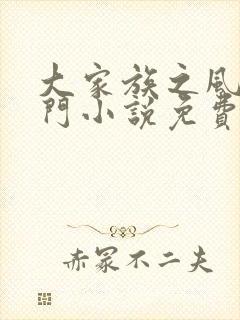 大家族之風
門小說免費
赤冢不二夫